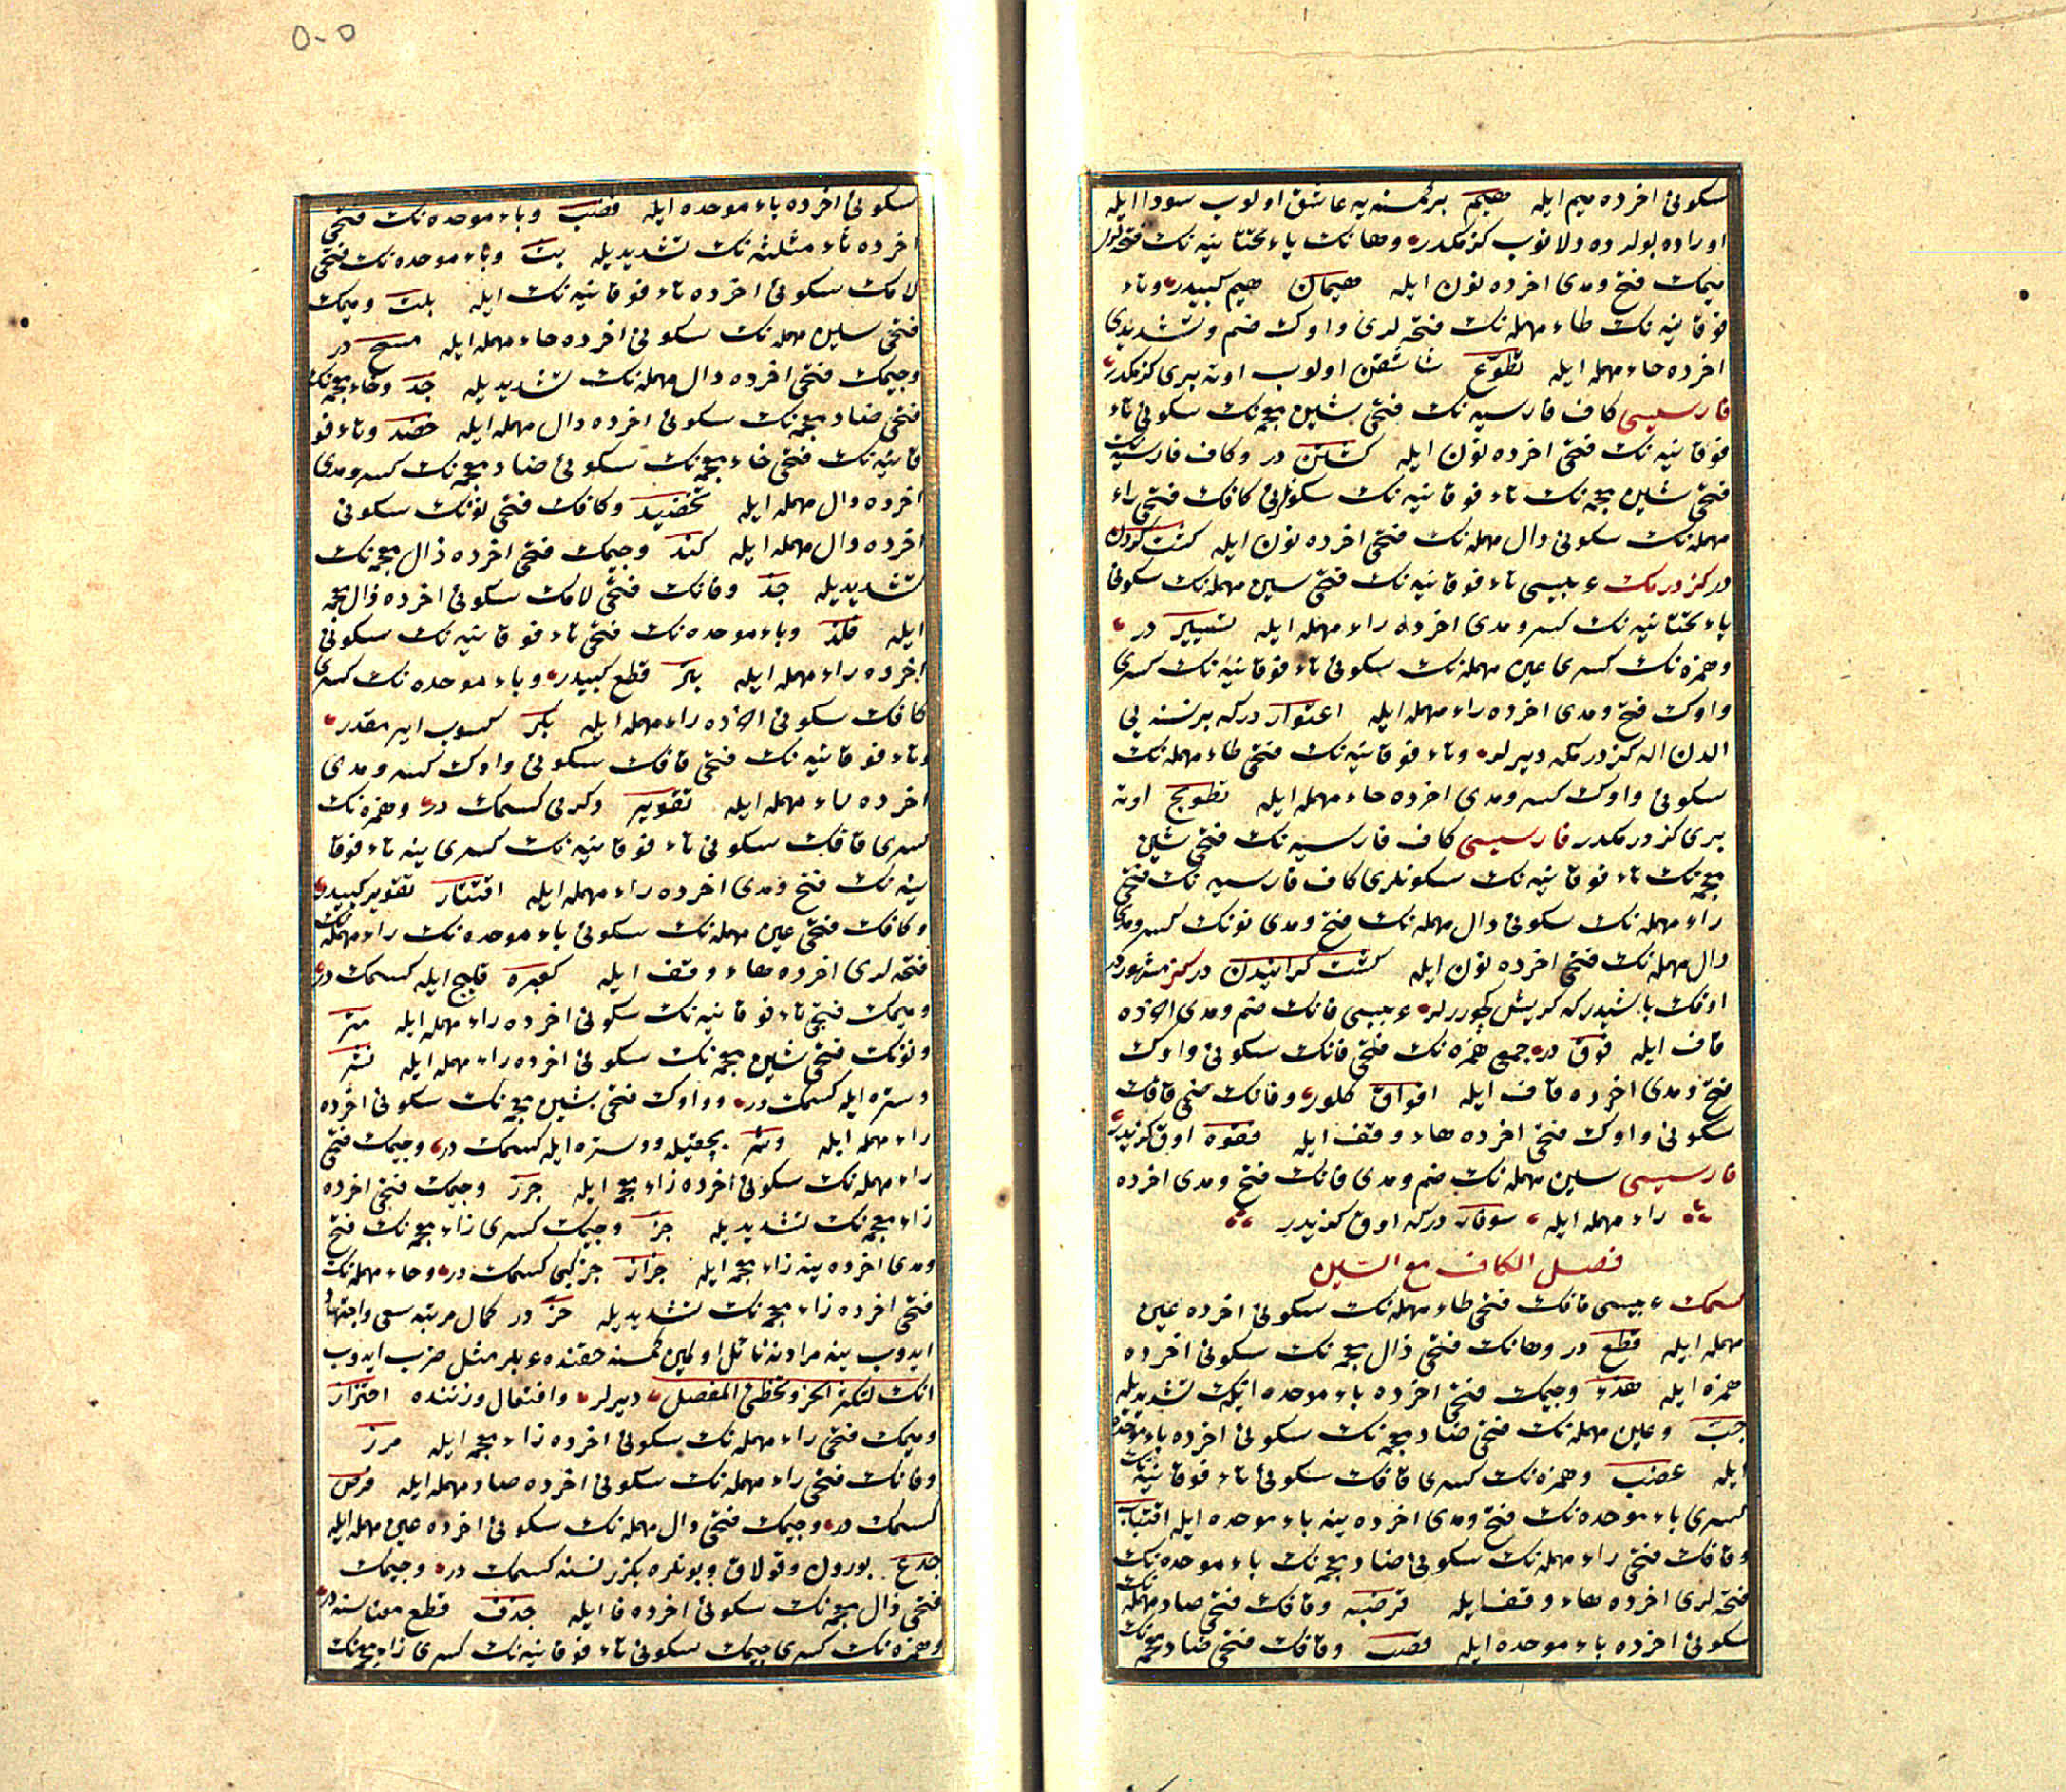 سكونى اخرده ميم ايله هيم بر كمسنه يه عاشق اولوب سودا ايله
اوراده بولرده دلانوب كزمكدر وهانك ياء تحتانيه نك فتحه لرى
ميمك فتح ومدى اخرده نون ايله هيمان هيم كبيدر وتاء
فوقانيه نك طاء مهمله نك فتحه لرى واوك ضم وتشديدى
اخرده حاء مهمله ايله تطوّح شاشقن اولوب اوته برى كزمكدر
فارسيسى كاف فارسيه نك فتحى شين معجمه نك سكونى تاء
فوقانيه نك فتحى اخرده نون ايله كشتن در وكاف فارسيه نك
فتحى شين معجمه نك تاء فوقانيه نك سكونلرى كافك فتحى راء
مهمله نك سكونى دال مهمله نك فتحى اخرده نون ايله كشت كردن
در كزدرمك عربيسى تاء فوقانيه نك فتحى سين مهمله نك سكونى
ياء تحتانيه نك كسر ومدى اخرده راء مهمله ايله تسيير در
وهمزه نك كسرى عين مهمله نك سكونى تاء فوقانيه نك كسرى
واوك فتح ومدى اخرده راء مهمله ايله اعتوار در كه بر نسنه يى
الدن اله كزدرمكه ديرلر وتاء فوقانيه نك فتحى طاء مهمله نك
سكونى واوك كسر ومدى اخرده حاء مهمله ايله تطويح اوته
برى كزدرمكدر فارسيسى كاف فارسيه نك فتحى شين
معجمه نك تاء فوقانيه نك سكونلرى كاف فارسيه نك فتحى
راء مهمله نك سكونى دال مهمله نك فتح ومدى نونك كسر ومدى
دال مهمله نك فتحى اخرده نون ايله كشت كردانيدن در كز مشهوردر
اوقك باشيدر كه كريشل كچوررلر عربيسى فانك ضم ومدى اخرده
قاف ايله فوق در جمعى همزه نك فتحى فانك سكونى واوك
فتح ومدى اخرده قاف ايله افواق كلور وفانك ضمى قافك
سكونى واوك فتحى اخرده هاء وقف ايله فقوه اوق كزيدر
فارسيسى سين مهمله نك ضم ومدى فانك فتح ومدى اخرده
راء مهمله ايله سوفار در كه اوق كزيدر
فصل الكاف مع السين
كسمك عربيسى قافك فتحى طاء مهمله نك سكونى اخرده عين
مهمله ايله قطع در وهانك فتحى ذال معجمه نك سكونى اخرده
همزه ايله هذء وجيمك فتحى اخرده باء موحده نيك تشديديله
جبّ وعين مهمله نك فتحى ضاد معجمه نك سكونى اخرده باء موحده
ايله عضب وهمزه نك كسرى قافك سكونى تاء فوقانيه نك
كسرى باء موحده نك فتح ومدى اخرده ينه باء موحده ايله اقتباب
وقافك فتحى راء مهمله نك سكونى ضاد معجمه نك باء موحده نك
فتحه لرى اخرده هاء وقف ايله قرضبه وقافك فتحى صاد مهمله نك
سكونى اخرده باء موحده ايله قصب وقافك فتحى ضاد معجمه نك
سكونى اخرده باء موحده ايله قضب وباء موحده نك فتحى
اخرده تاء مثلثه نك تشديديله بتّ وباء موحده نك فتحى
لامك سكونى اخرده تاء فوقانيه نك ايله بلت وميمك
فتحى سين مهمله نك سكونى اخرده حاء مهمله ايله مسح در
وجيمك فتحى اخرده دال مهمله نك تشديديله جدّ وخاء معجمه نك
فتحى ضاد معجمه نك سكونى اخرده دال مهمله ايله خضد وتاء فو
قانيه نك فتحى خاء معجمه نك سكونى ضاد معجمه نك كسر ومدى
اخرده دال مهمله ايله تخضيد وكافك فتحى نونك سكونى
اخرده دال مهمله ايله كند وجيمك فتحى اخرده ذال معجمه نك
تشديديله جذّ وفانك فتحى لامك سكونى اخرده ذال معجمه
ايله فلذ وباء موحده نك فتحى تاء فوقانيه نك سكونى
اخرده راء مهمله ايله بتر قطع كبيدر وباء موحده نك كسرى
كافك سكونى اخرده راء مهمله ايله بكر كسوب ايرمقدر
وتاء فوقانيه نك فتحى قافك سكونى واوك كسر ومدى
اخرده راء مهمله ايله تقوير دكرمى كسمك در وهمزه نك
كسرى قافك سكونى تاء فوقانيه نك كسرى ينه تاء فوقا
نيه نك فتح ومدى اخرده راء مهمله ايله اقتتار تقوير كبيدر
وكافك فتحى عين مهمله نك سكونى باء موحده نك راء مهمله نك
فتحه لرى اخرده هاء وقف ايله كعبره قليج ايله كسمك در
وميمك فتحى تاء فوقانيه نك سكونى اخرده راء مهمله ايله متر
ونونك فتحى شين معجمه نك سكونى اخرده راء مهمله ايله نشر
دستره ايله كسمك در وواوك فتحى شين معجمه نك سكونى اخرده
راء مهمله ايله وشر بچقيله ودستره ايله كسمك در وجيمك فتحى
راء مهمله نك سكونى اخرده زاء معجمه ايله جرز وجيمك فتحى اخرده
زاء معجمه نك تشديديله جزّ وجيمك كسرى زاء معجمه نك فتح
ومدى اخرده ينه زاء معجمه ايله جزاز جز كبى كسمك در وحاء مهمله نك
فتحى اخرده زاء معجمه نك تشديديله حزّ در كمال مرتبه سعى واجتهاد
ايدوب ينه مرادينه نائل اولمين كمسنه حقنده عربلر مثل ضرب ايدوب
انك لتكثر الحز وتخطئ المفصل ديرلر وافتعال وزننده احتزاز
وميمك فتحى راء مهمله نك سكونى اخرده زاء معجمه ايله مرز
وفانك فتحى راء مهمله نك سكونى اخرده صاد مهمله ايله فرص
كسمك در وجيمك فتحى دال مهمله نك سكونى اخرده عين مهمله ايله
جدع بورون وقولاق وبونلره بكزر نسنه كسمك در وجيمك
فتحى ذال معجمه نك سكونى اخرده فا ايله جذف قطع معناسنه در
وهمزه نك كسرى جيمك سكونى تاء فوقانيه نك كسرى زاء معجمه نك